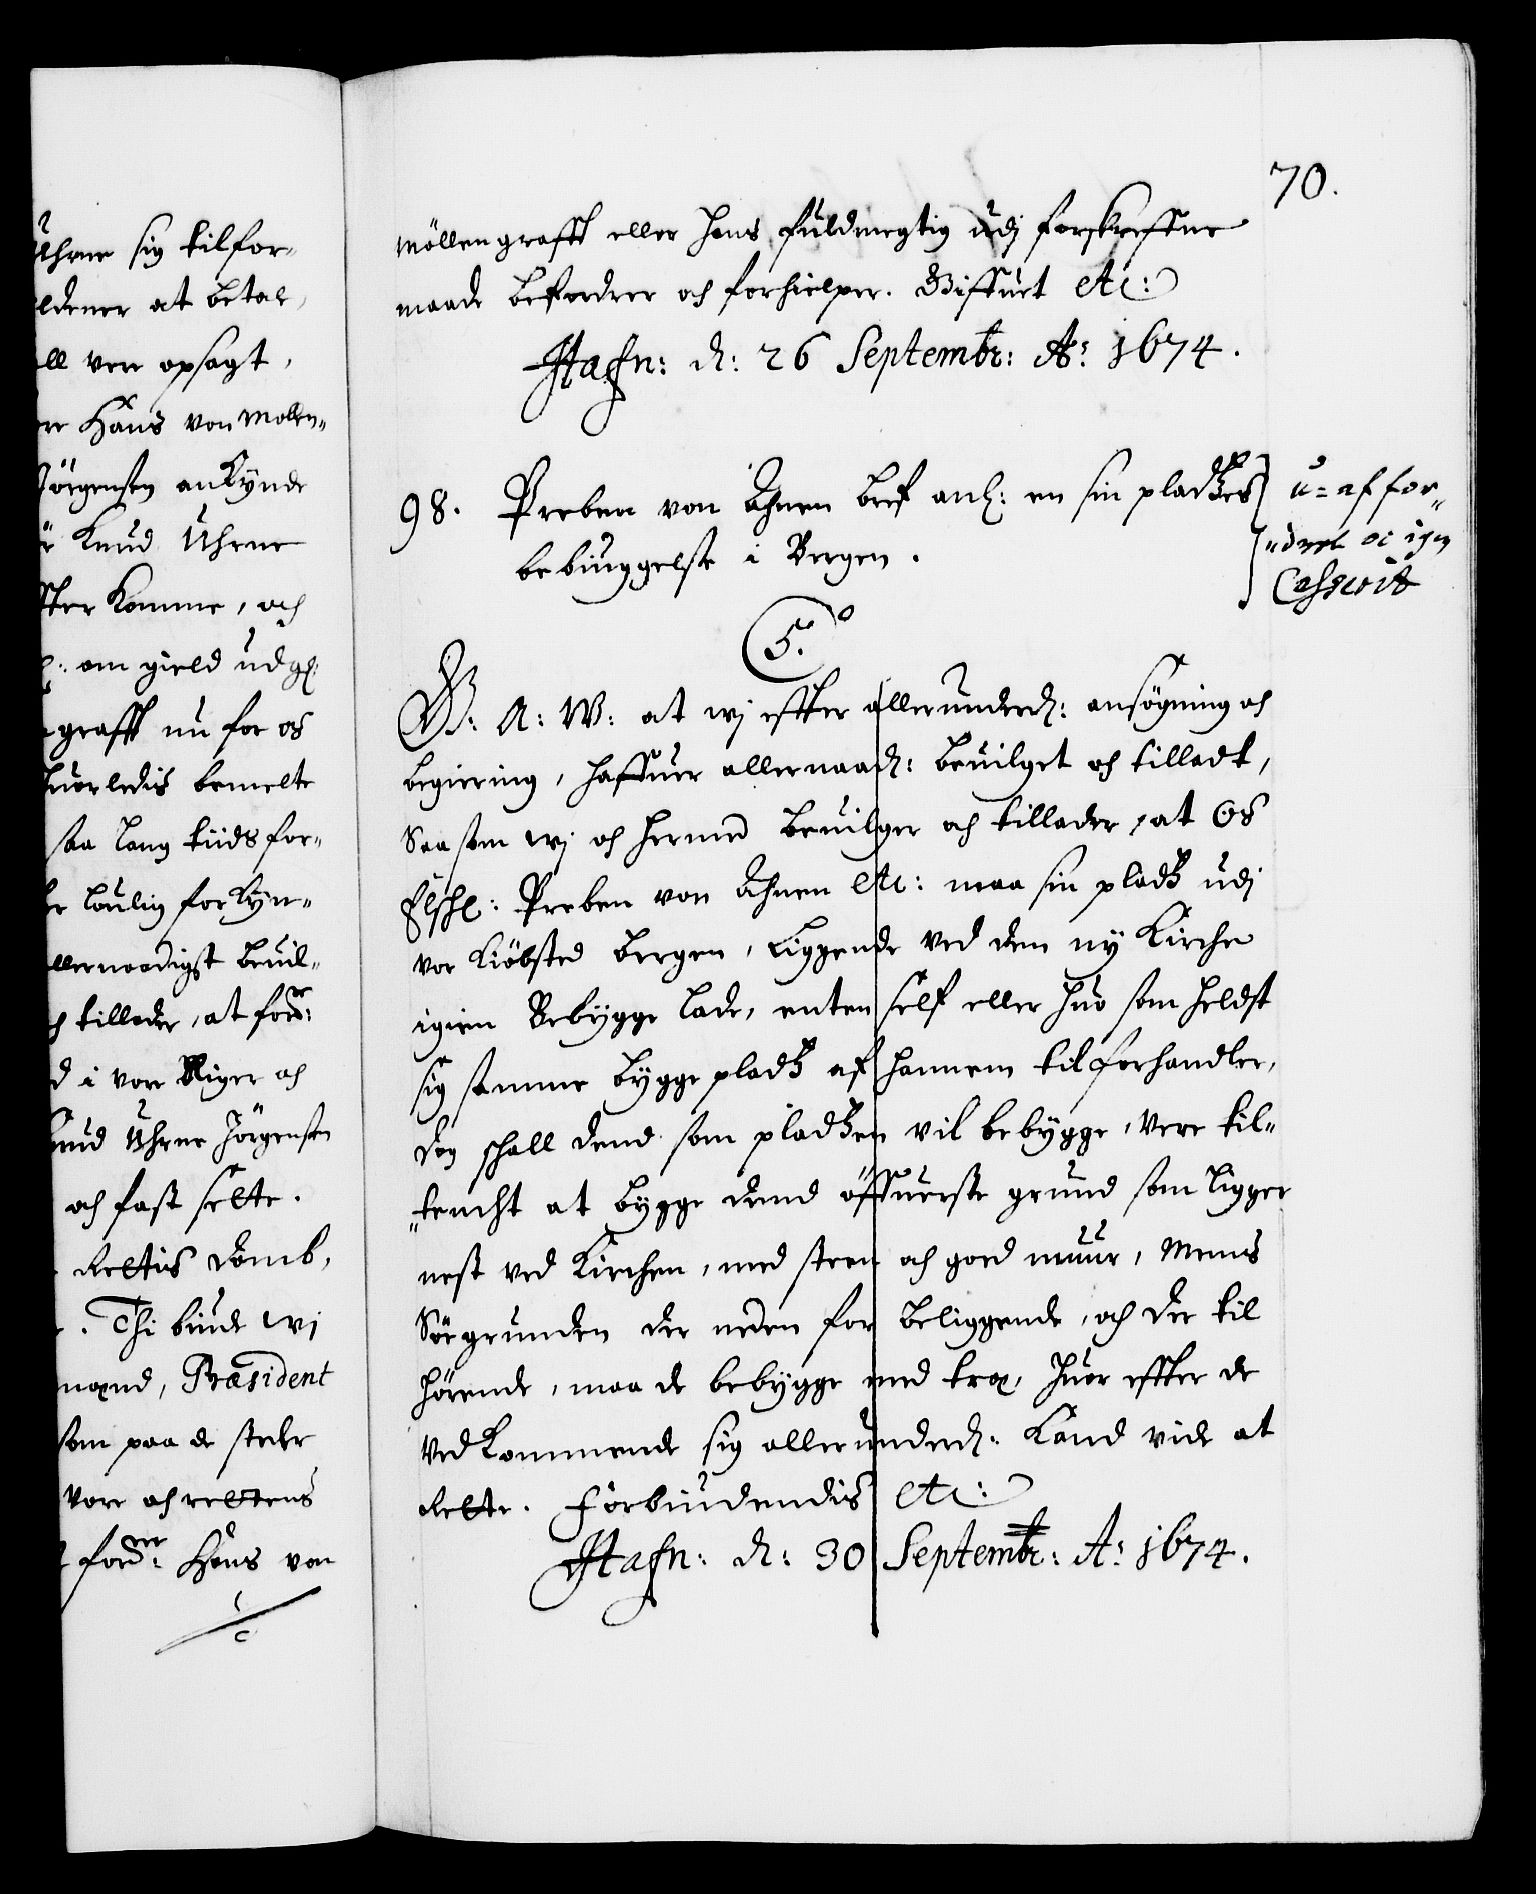 Uhrne sig tilfor-
ldener at betal,
ll vere opsagt,
re Hans von Mollen-
Jörgensen ankynde
Knud Uhrne
fter komme, och
om gield udg:
grafft nu for os
huorledis bemelte
saa lang tiids for-
loulig forkyn-
llernaadigst beuil-
h tillader, at for:ne
d i vore Riger och
Knud Uhrne Jörgensen
och fast sette.
Rettis Domb,
. Thi biude wj
mænd, Præsident
som paa de steder
vore och rettens
for:ne Hans von
70.
Möllengrafft eller hans fuldmegtig udj forskreffne
maade befordrer och forhielper. Giffuet etc:
Hafn: d: 26 Septembr: Ao: 1674.
98. Preben von Ahnen Bref anl: en sin pladtzes
bebiuggelse i Bergen.
u-af for-
dret oc igen
Casserit
5.
G. A: W: at wj effter allerunderd: ansögning och
begiering, haffuer allernaad: beuilget och tilladt,
Saa som wj och hermed beuilger och tillader, at Os
Elschl: Preben von Ahnen etc: maa sin pladtz udj
vor Kiöbsted Bergen, liggende ved den ny Kirche
igien Bebygge lade, enten self eller huo som heldst
sig samme bygge pladtz af hannem tilforhandler,
dog schall dend som pladtzen vil bebygge, vere til-
tencht at bygge dend öffuerste grund som ligger
nest ved Kirchen, med steen och goed muur, Mens
Söegrunden der neden for beliggende, och der til
hörende, maa de bebygge med træ, huor effter de
vedkommende sig allerunderd: kand vide at
Rette. Forbiudendis etc:
Hafn: d: 30 Septembr: Ao: 1674.